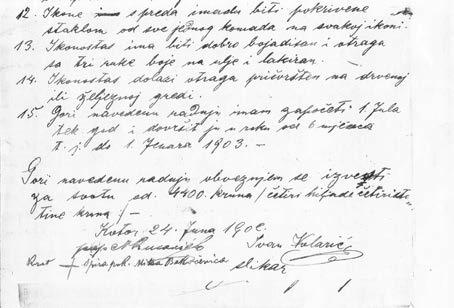 12. Ikone spreda imadu biti pokrivene
staklom od sve jednog komada na svakoj ikoni.
13. Ikonostas ima biti dobro bojadisan i otraga
sa tri ruke boje na ulje i lakiran.
14. Ikonostas dolazi otraga pričvršten na drvenoj
ili željeznoj gredi.
15. Gori navedenu radnju imam započeti 1. Jula
tek. god. i dovršit ju u roku od 6 mjeseca
t. j. do 1. Januara 1903. —
Gori navedenu radnju obvezujem se izvesti
za svotu od 4400. kruna / četiri hiljade četiristo-
tine kruna / —
Kotor 24. Juna 1902.
Ivan Volarić
slikar